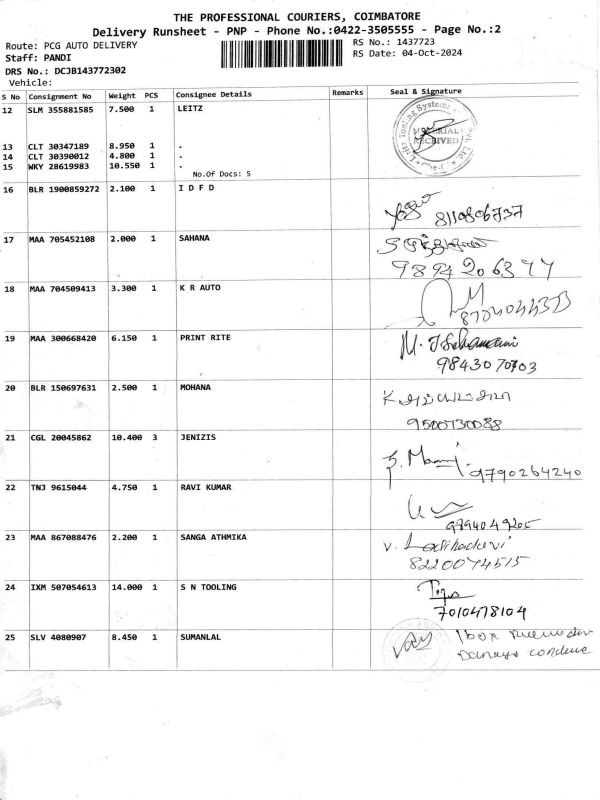 THE PROFESSIONAL COURIERS, COIMBATORE
Delivery Runsheet - PNP - Phone No.:0422-3505555 - Page No.:2
Route: PCG AUTO DELIVERY RS No.: 1437723
Staff: PANDI RS Date: 04-Oct-2024
DRS No.: DCJB143772302
Vehicle:
S No Consignment No Weight PCS Consignee Details Remarks Seal & Signature
12 SLM 355881585 7.500 1 LEITZ
MATERIAL
RECEIVED
13 CLT 30347189 8.950 1 .
14 CLT 30390012 4.800 1 .
15 WKY 28619983 10.550 1 .
No.Of Docs: 5
16 BLR 1900859272 2.100 1 I D F D
8110806737
17 MAA 705452108 2.000 1 SAHANA
9894206377
18 MAA 704509413 3.300 1 K R AUTO
19 MAA 300668420 6.150 1 PRINT RITE
9843070703
20 BLR 150697631 2.500 1 MOHANA
9500730088
21 CGL 20045862 10.400 3 JENIZIS
9790264240
22 TNJ 9615044 4.750 1 RAVI KUMAR
9894049205
23 MAA 867088476 2.200 1 SANGA ATHMIKA
8220074515
24 IXM 507054613 14.000 1 S N TOOLING
7010478104
25 SLV 4080907 8.450 1 SUMANLAL
1 box